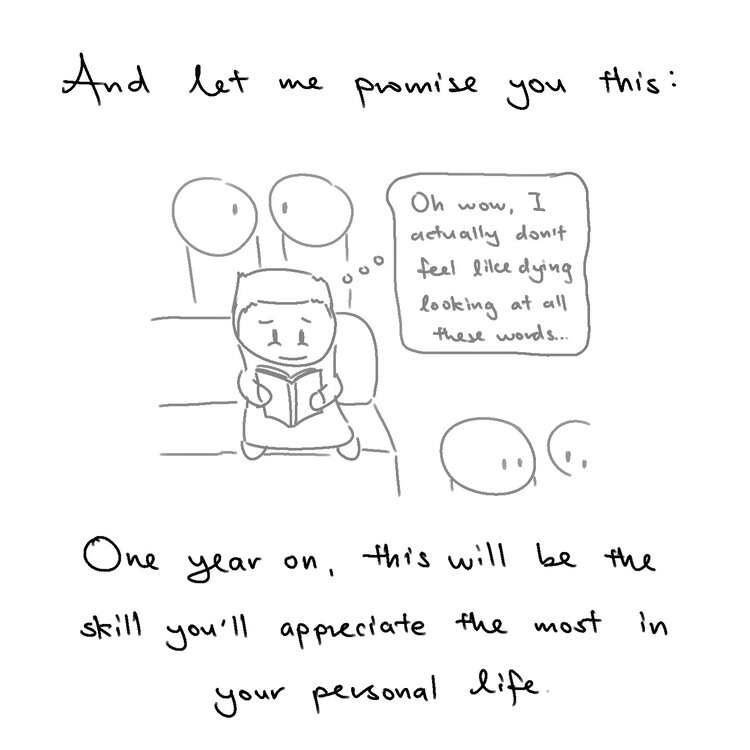 And let me promise you this:
Oh wow, I
actually don't
feel like dying
looking at all
these words...
One year on, this will be the
skill you'll appreciate the most in
your personal life.